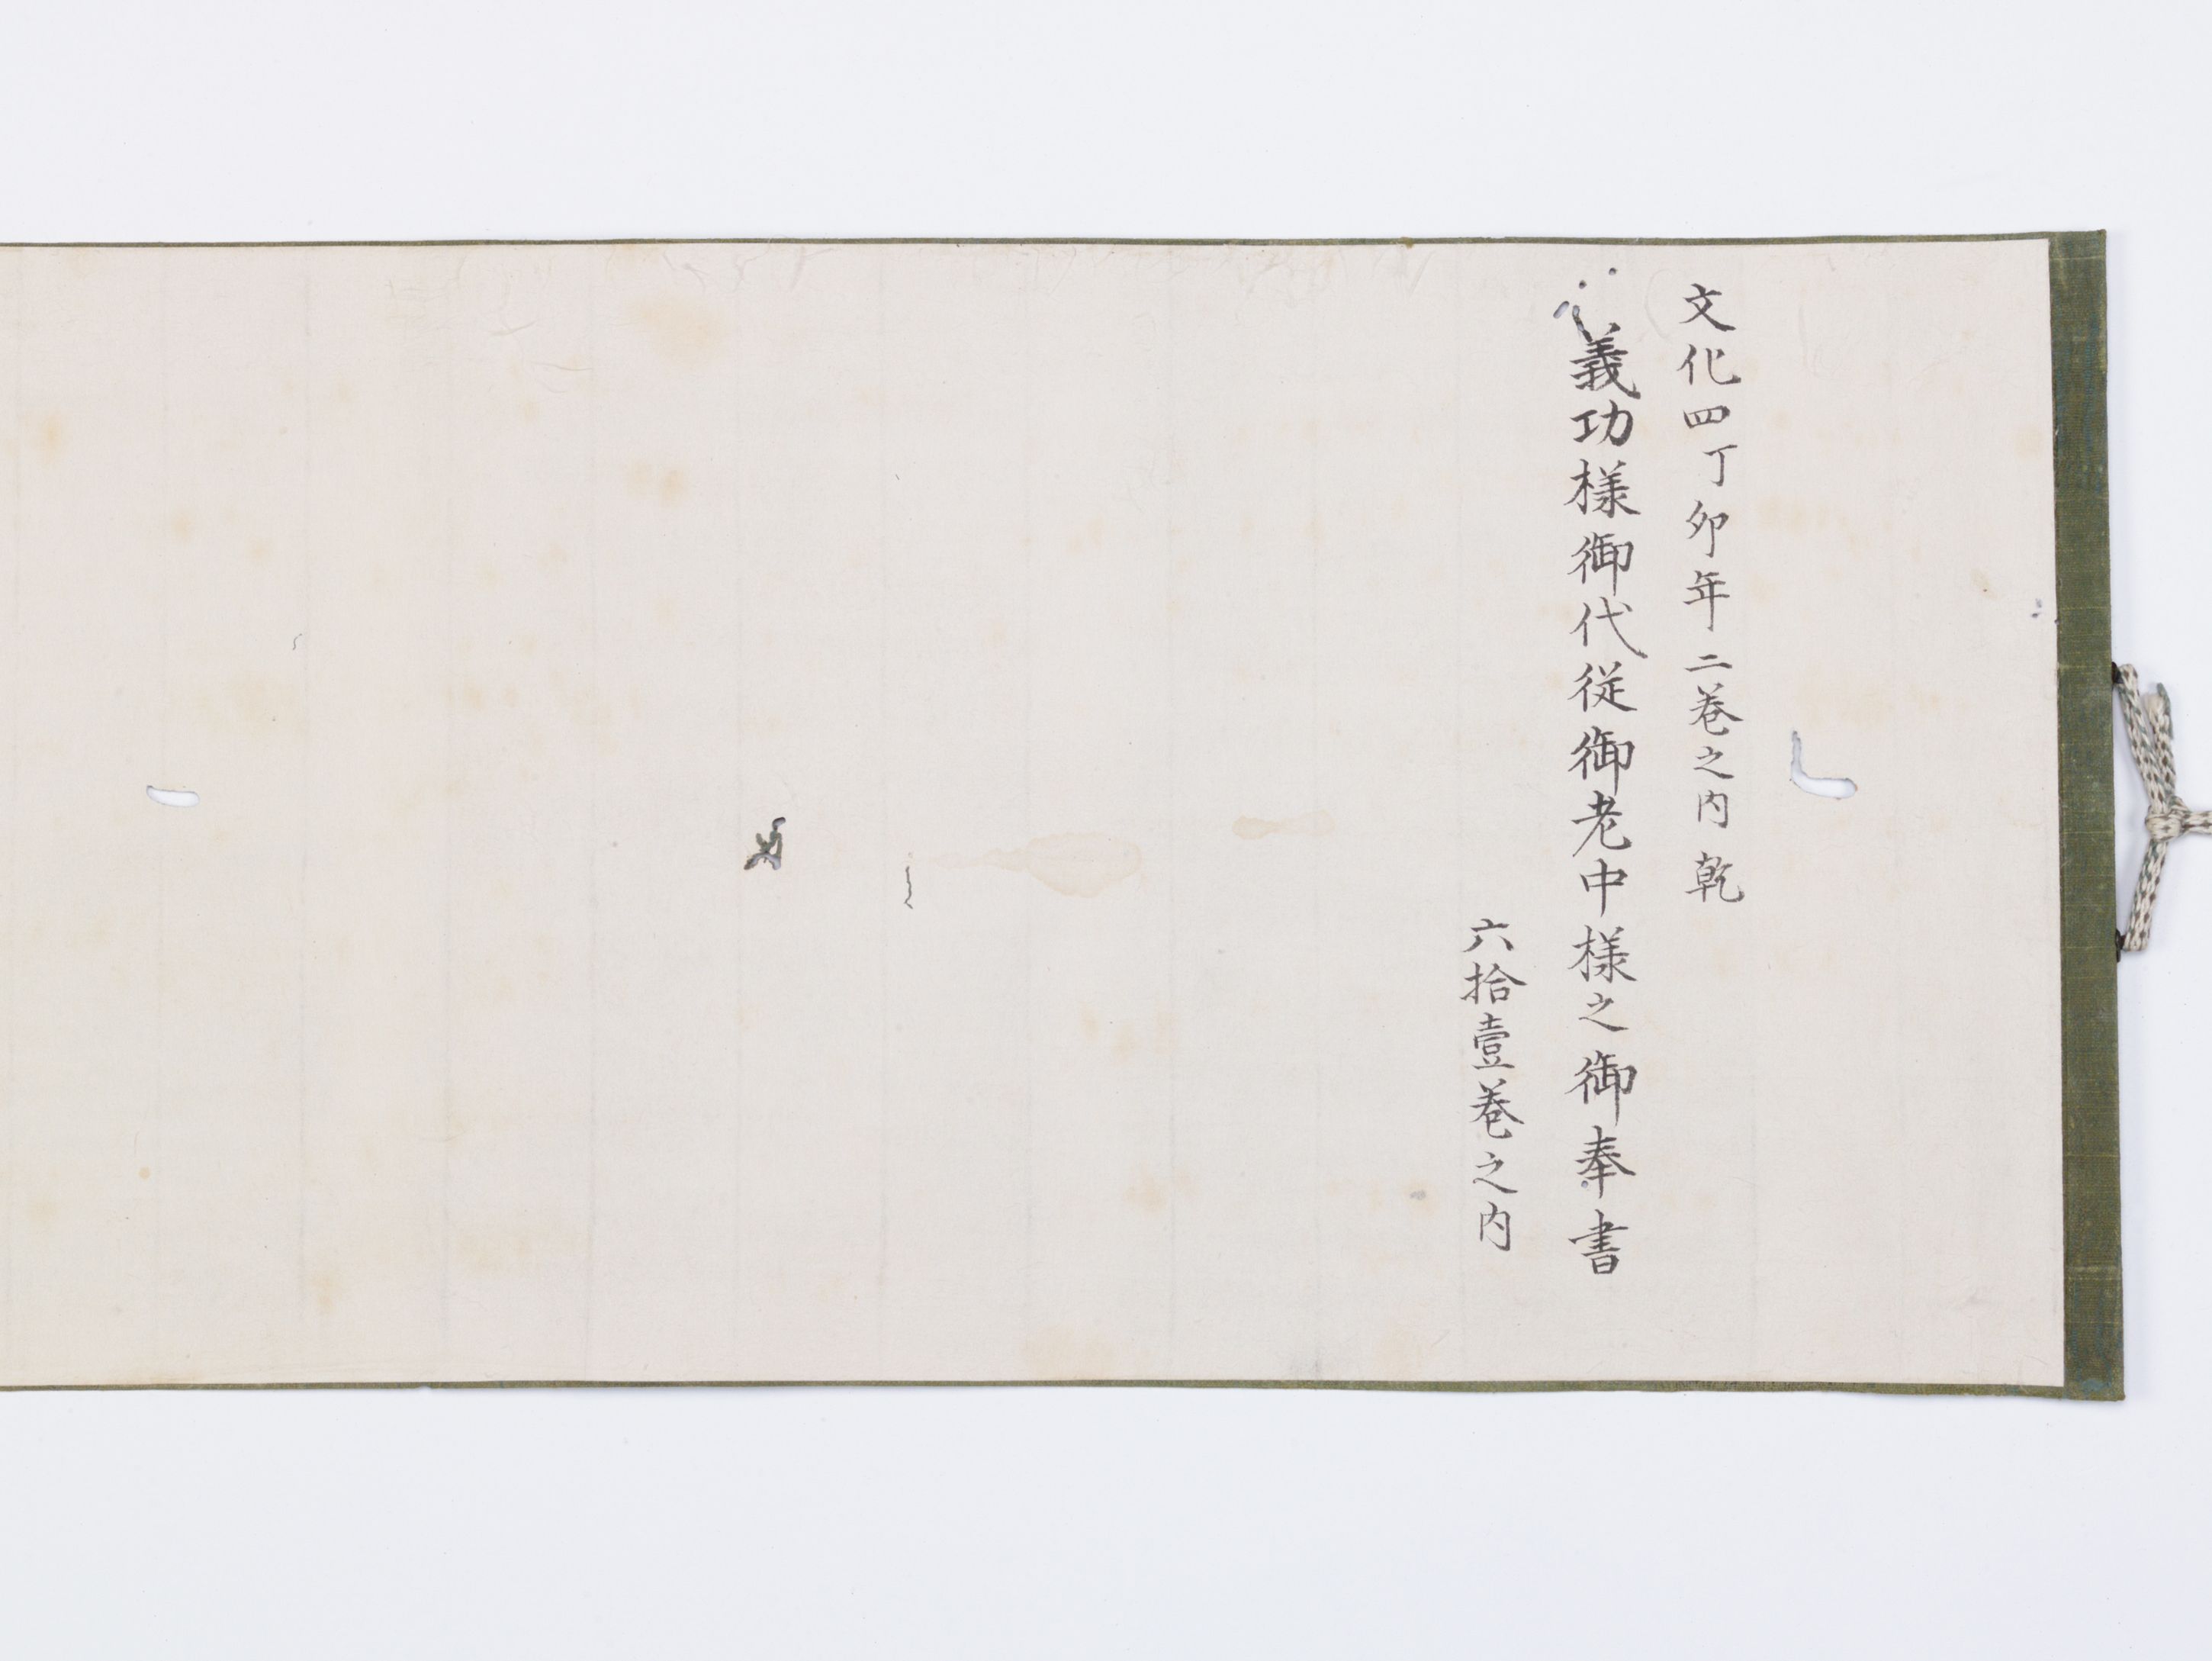 文化四丁卯年二巻之内 乾
義功様御代従御老中様之御奉書
六拾壹巻之内